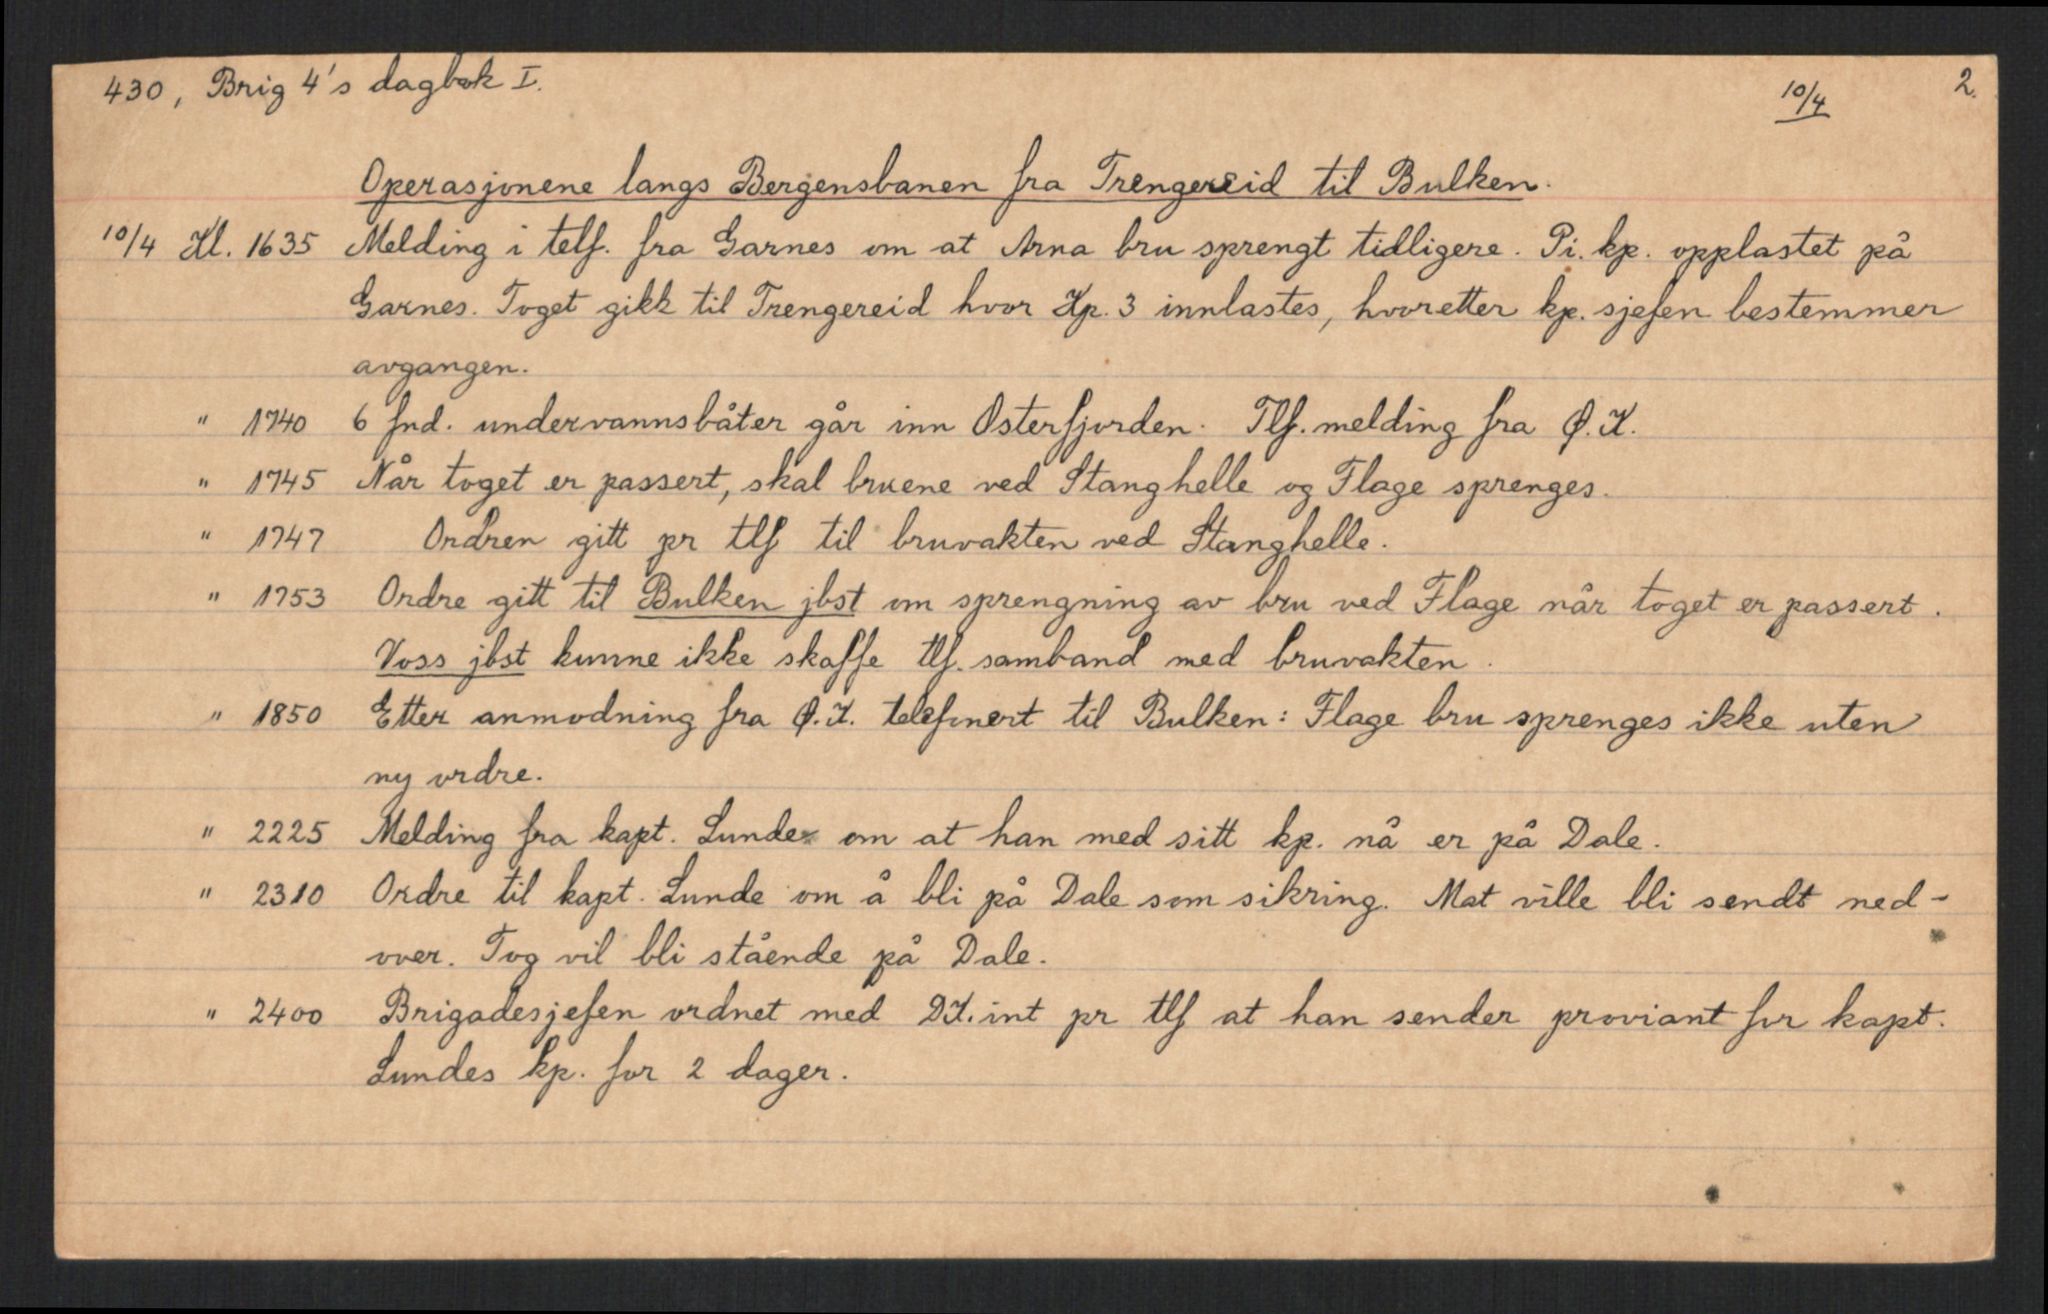 430, Brig 4's dagbok I.
10/4
2.
Operasjonene langs Bergensbanen fra Trengereid til Bulken.
10/4 Kl. 1635 Melding i telf. fra Garnes om at Arna bru sprengt tidligere. Pi. kp. opplastet på
Garnes. Toget gikk til Trengereid hvor Kp. 3 innlastes, hvoretter kp. sjefen bestemmer
avgangen.
" 1740 6 fnd. undervannsbåter går inn Osterfjorden. Tlf. melding fra Ø.K.
" 1745 Når toget er passert, skal bruene ved Stanghelle og Flage sprenges.
" 1747 Ordren gitt pr tlf til bruvakten ved Stanghelle.
" 1753 Ordre gitt til Bulken jbst om sprengning av bru ved Flage når toget er passert.
Voss jbst kunne ikke skaffe tlf. samband med bruvakten.
" 1850 Etter anmodning fra Ø.K. telefonert til Bulken: Flage bru sprenges ikke uten
ny ordre.
" 2225 Melding fra kapt. Lunde om at han med sitt kp. nå er på Dale.
" 2310 Ordre til kapt. Lunde om å bli på Dale som sikring. Mat ville bli sendt ned-
over. Tog vil bli stående på Dale.
" 2400 Brigadesjefen ordnet med DK. int pr tlf at han sender proviant for kapt.
Lundes kp. for 2 dager.